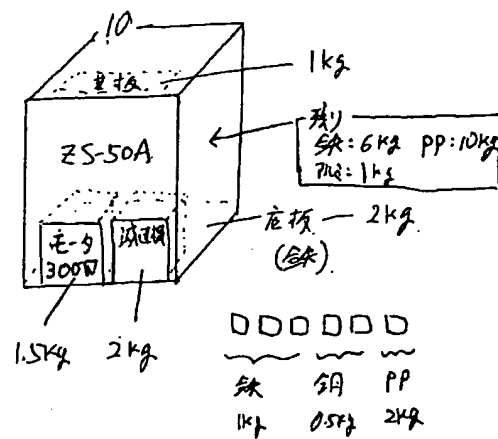 10
基板
1kg
ZS-50A
残り
鉄:6kg PP:10kg
アルミ:1kg
モータ
300W
減速機
底板
2kg
(鉄)
1.5kg
2kg
鉄
銅
PP
1kg
0.5kg
2kg